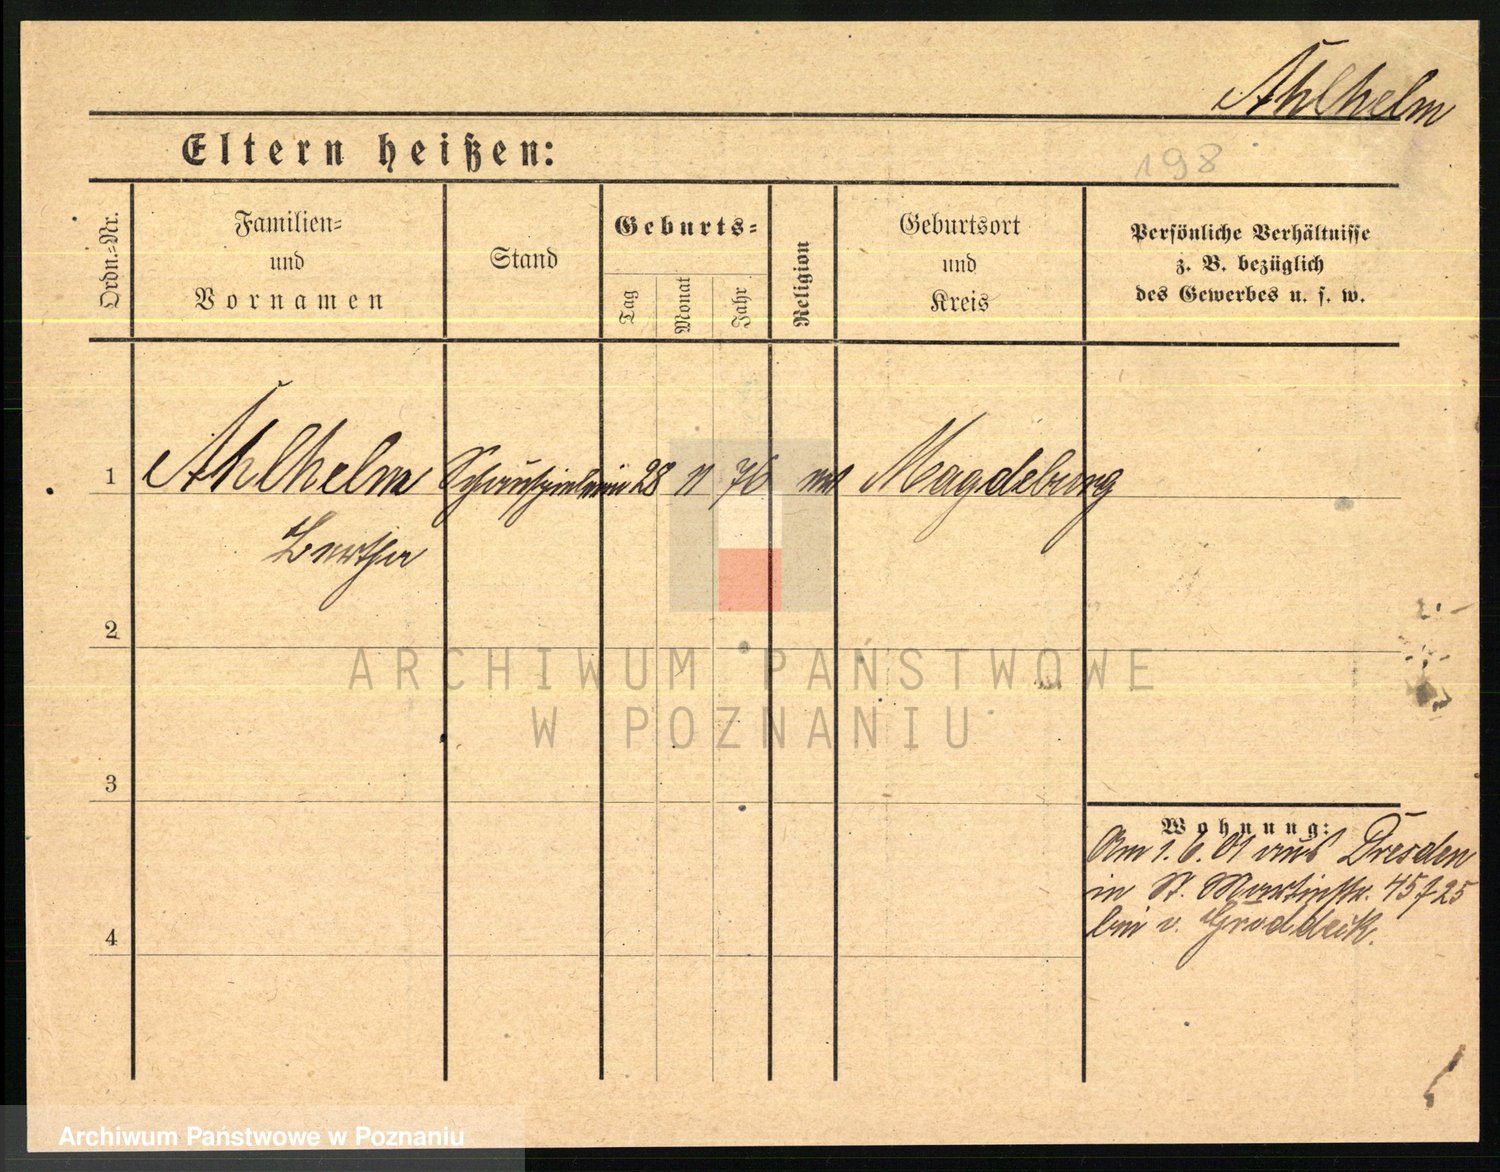 Ahlhelm
Eltern heißen:
198
Ordn.-Nr.
Familien-
und
Vornamen
Stand
Geburts-
Tag
Monat
Jahr
Religion
Geburtsort
und
Kreis
Persönliche Verhältnisse
z. B. bezüglich
des Gewerbes u. s. w.
1
Ahlhelm Schauspielerin 28 11 76 Magdeburg
Bertha
2
ARCHIWUM PAŃSTWOWE
W POZNANIU
3
Wohnung:
Am 1.6.01 aus Dresden
in St. Martinstr. 45
bei v. Groddeck.
4
Archiwum Państwowe w Poznaniu